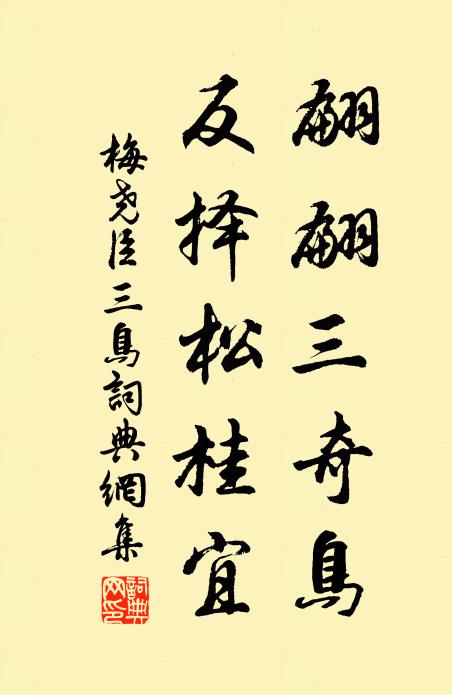 翩翩三奇鳥
反择松桂宜
梅尧臣三鳥詞典網集
詞典网印